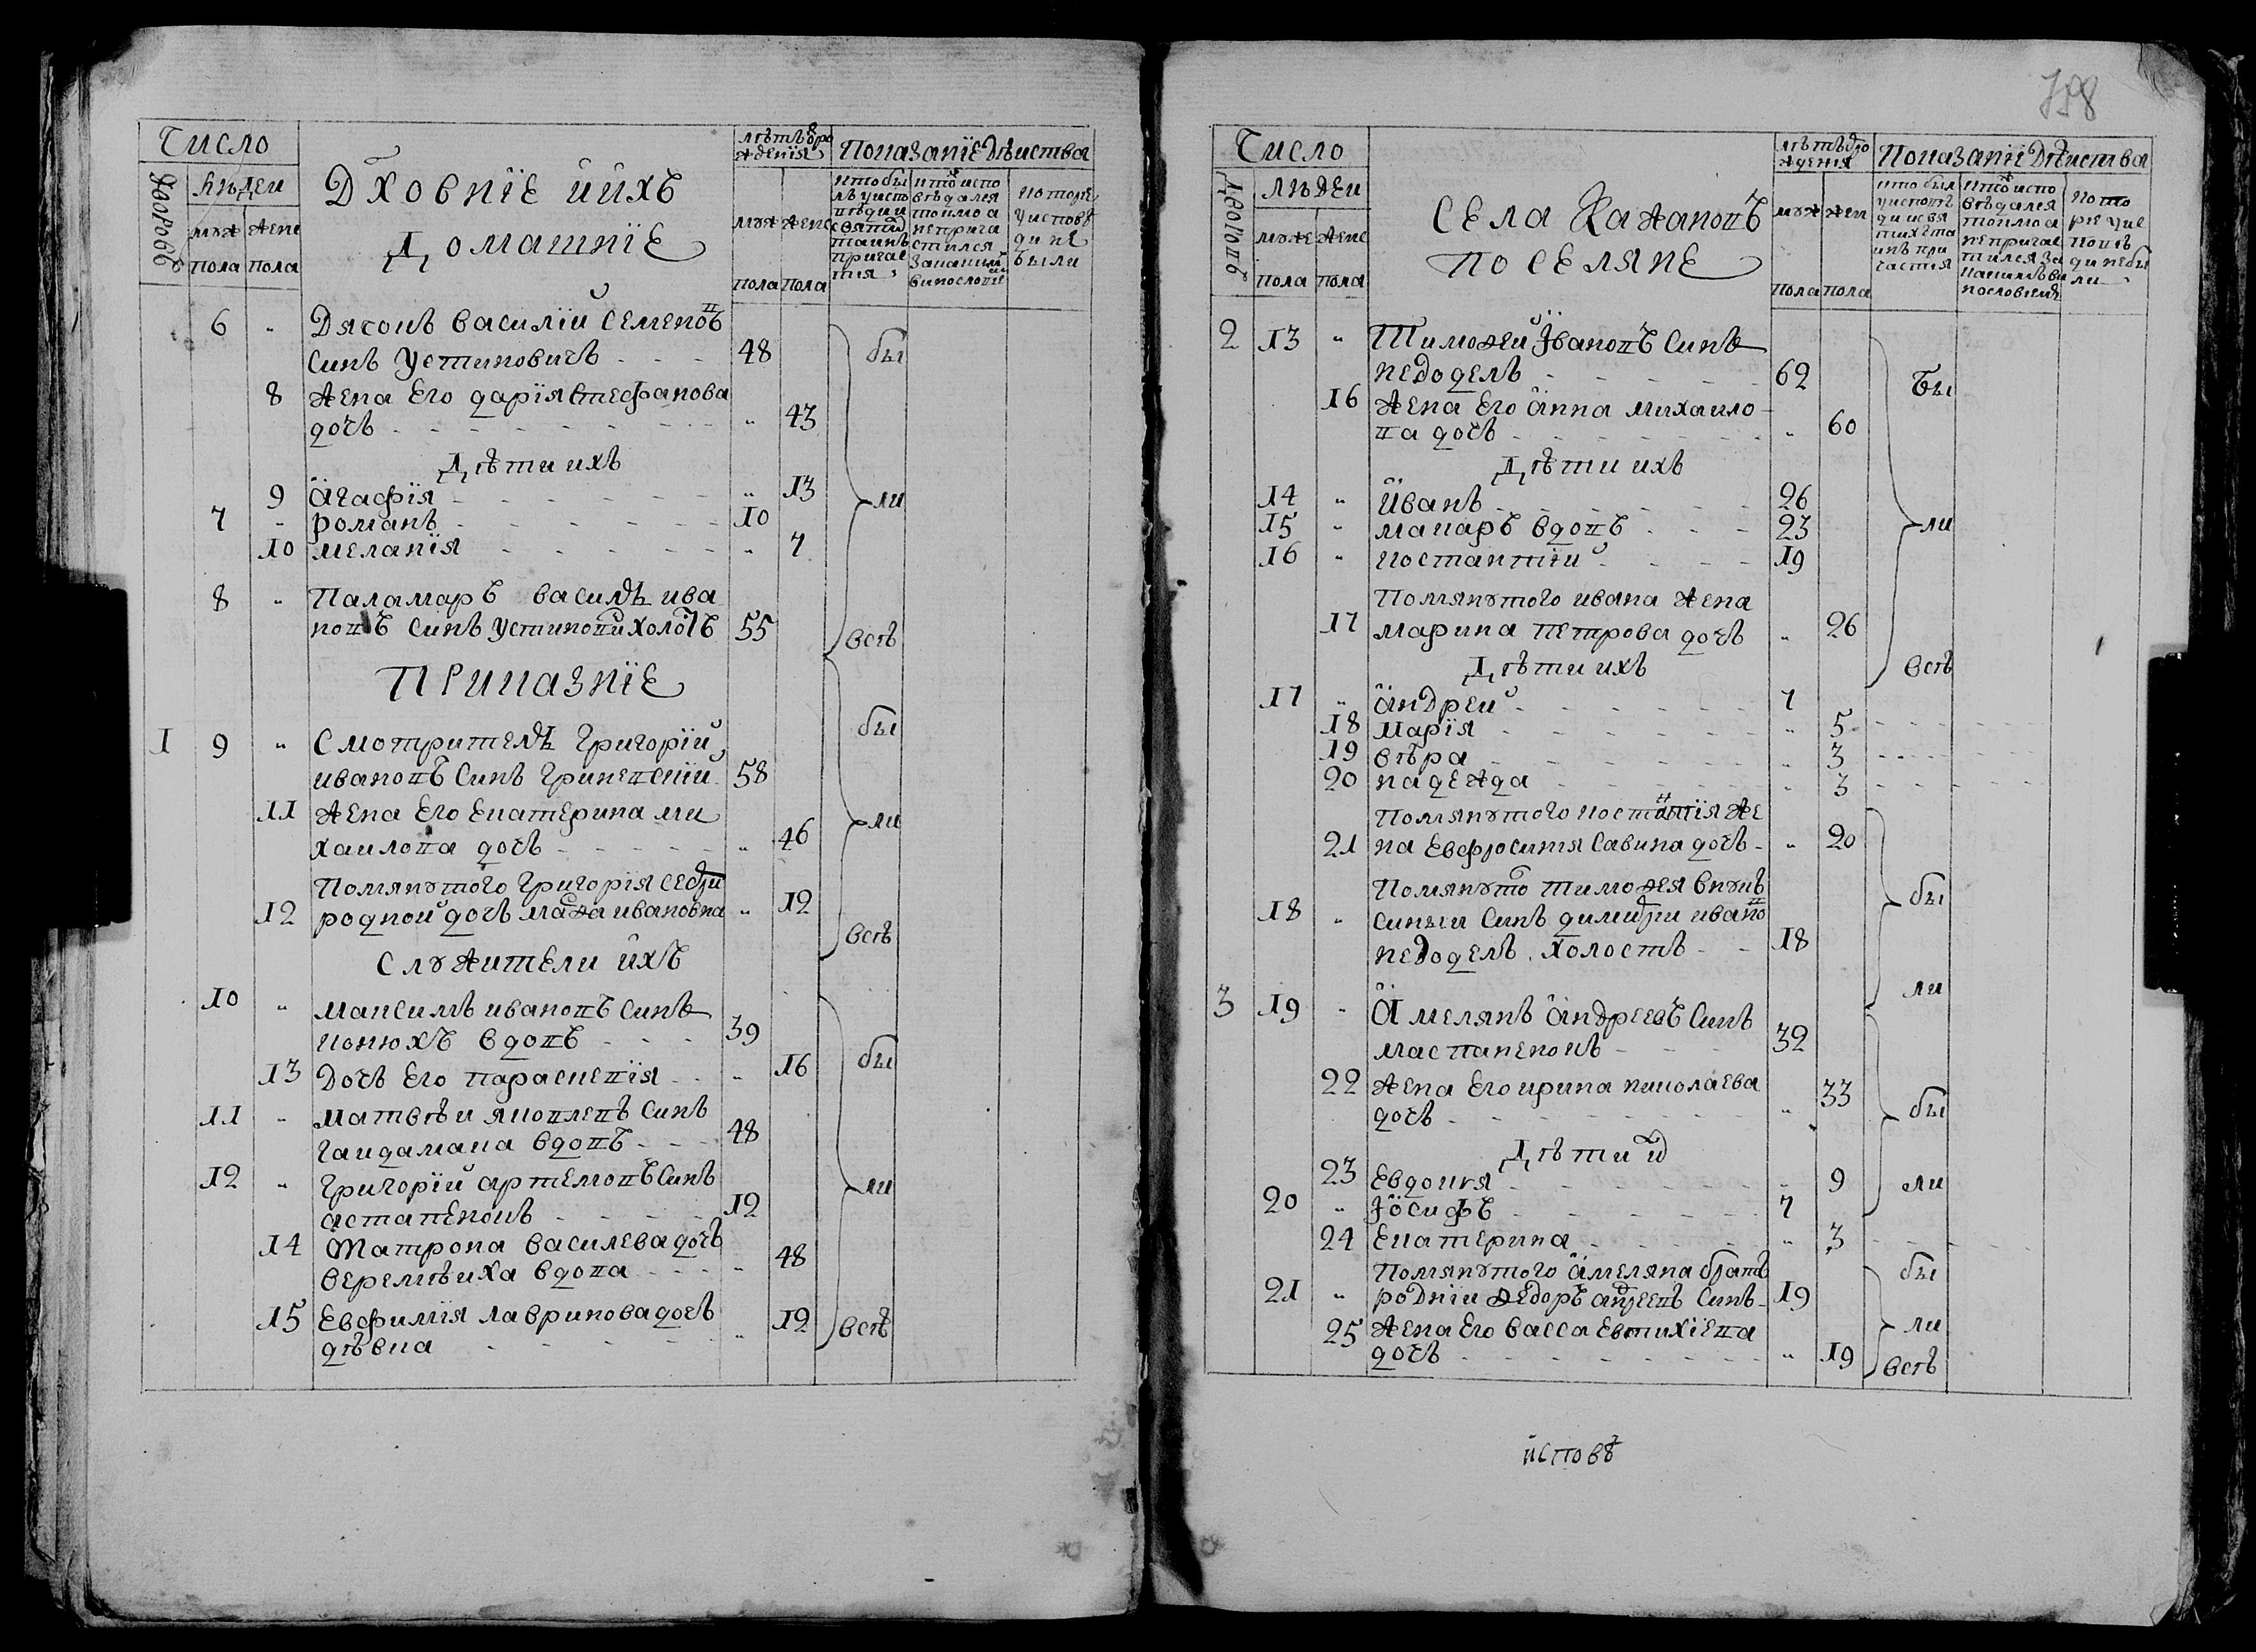 Число
Дворовъ
Людеи
муж
пола
жене
пола
Дховніе ӥихъ
Домашніе
лѣтъ ѿро
жденія
муж
пола
жене
пола
Показаніе дѣиства
кто бы
лъ у испо
вѣди и
святи
таинъ
причас
тия
кто испо
вѣдался
токмо а
не прича
стился
за каким
винослови
которе
у исповѣ
ди не
были
6 " Дяконъ василій семеновъ
синъ устиновичъ - - - 48
8 жена его дария стефанова
дочъ - - - - - " 43
Дѣти ихъ
9 агафія - - - - " 13
7 " романъ - - - - 10
10 меланія - - - - " 7
8 " Паламаръ василъ ива
новъ синъ устинови холо 55
бы
ли
всѣ
Приказніе
1 9 " Смотрителъ григорій
ивановъ синъ гриневскій 58
11 жена его екатерина ми
хаилова дочъ - - - - " 46
Помянутого григорія сестри
12 родной дочъ марѳа ивановна " 12
бы
ли
всѣ
Служители ихъ
10 " максимъ ивановъ синъ
конюхъ вдовъ - - - 39
13 Дочъ его параскевія - - " 16
11 " матвѣи яковлевъ синъ
гаидамака вдовъ - - - 48
12 " григорій артемовъ синъ
астапенокъ - - - - 12
14 Матрона василева дочъ
веремѣиха вдова - - - " 48
15 Евфимія лавринова дочъ
дѣвка - - - - " 12
бы
ли
всѣ
Число
Дворовъ
Людеи
муже
пола
жене
пола
Села Кажановъ
поселяне
лѣтъ ѿро
жденія
муж
пола
жен
пола
Показаніе Дѣиства
кто был
у исповѣ
ди и свя
тих та
инъ при
частия
кто испо
вѣдался
токмо а
не причас
тился за
каким ви
нословием
кото
рие у ис
повѣ
ди не бы
ли
2 13 " Тимоѳеи Ивановъ синъ
недоделъ - - - - 62
16 жена его анна михаило
ва дочъ - - - - - " 60
Дѣти ихъ
14 " иванъ - - - - 26
15 " макаръ вдовъ - - - 23
16 " костантій - - - - 19
Помянутого ивана жена
17 марина петрова дочъ " 26
Дѣти ихъ
17 " андрей - - - - 7
18 марія - - - - " 5
19 вѣра - - - - " 3
20 надежда - - - - " 3
бы
ли
всѣ
Помянутого костантія же
21 на евфросиния савина дочъ - " 20
Помянуто тимоѳея внукъ
18 " синъ димитри ивано
недоделъ холостъ - - 18
бы
ли
3 19 " Амелянъ андреевъ синъ
Мастаненокъ - - - 32
22 жена его ирина николаева
дочъ - - - - - " 33
Дѣти и
23 евдокия - - - - " 9
20 " Іосифъ - - - - 7
24 екатерина - - - - " 3
бы
ли
Помянутого амеляна братъ
21 " родніи ѳедоръ андреевъ синъ - 19
25 жена его васса евтихіева
дочъ - - - - - " 19
бы
ли
всѣ
исповѣ